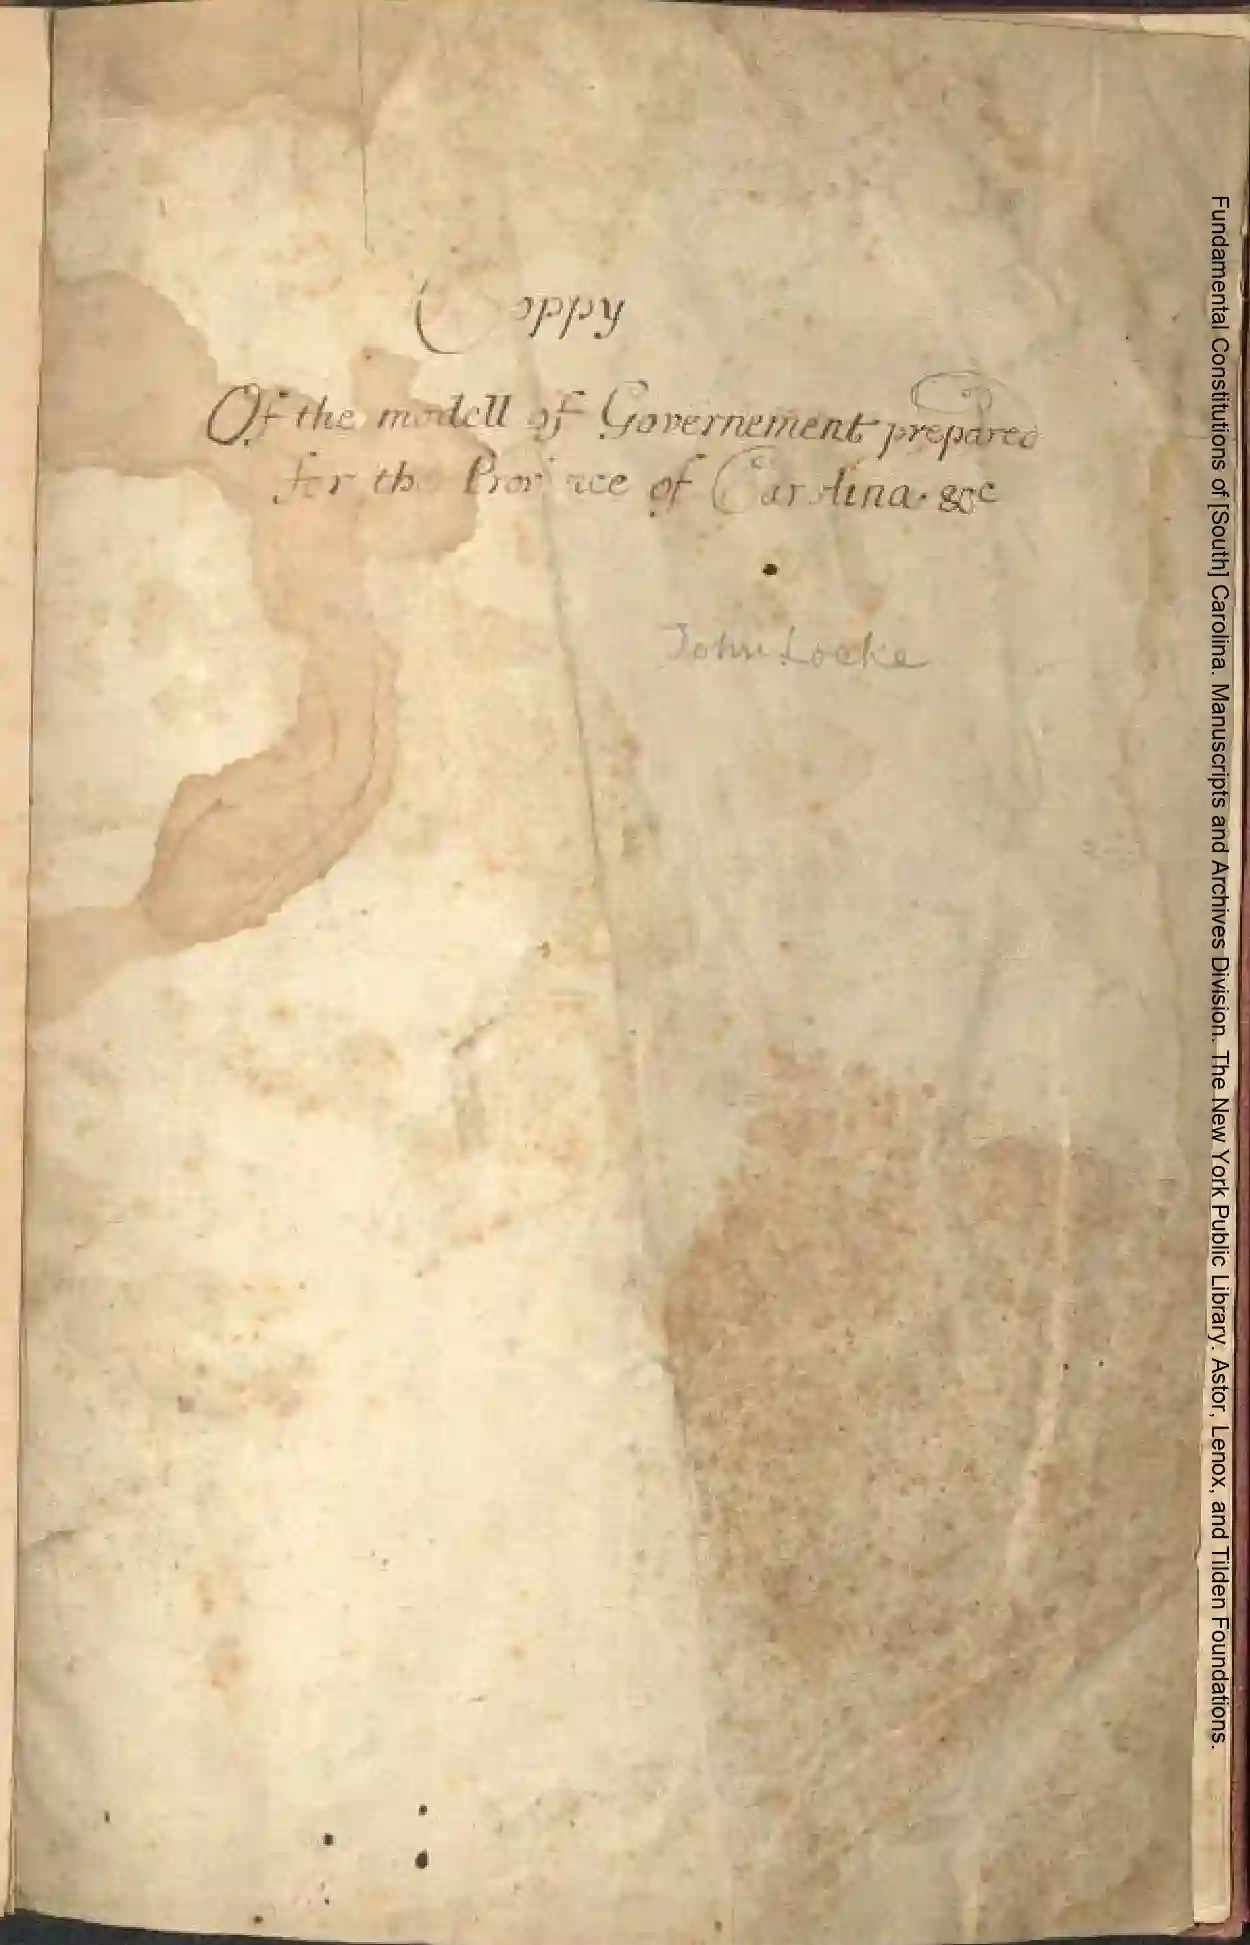 Coppy
Of the modell of Governement prepared
for the Province of Carolina. &c
John Locke
Fundamental Constitutions of [South] Carolina. Manuscripts and Archives Division. The New York Public Library. Astor, Lenox, and Tilden Foundations.